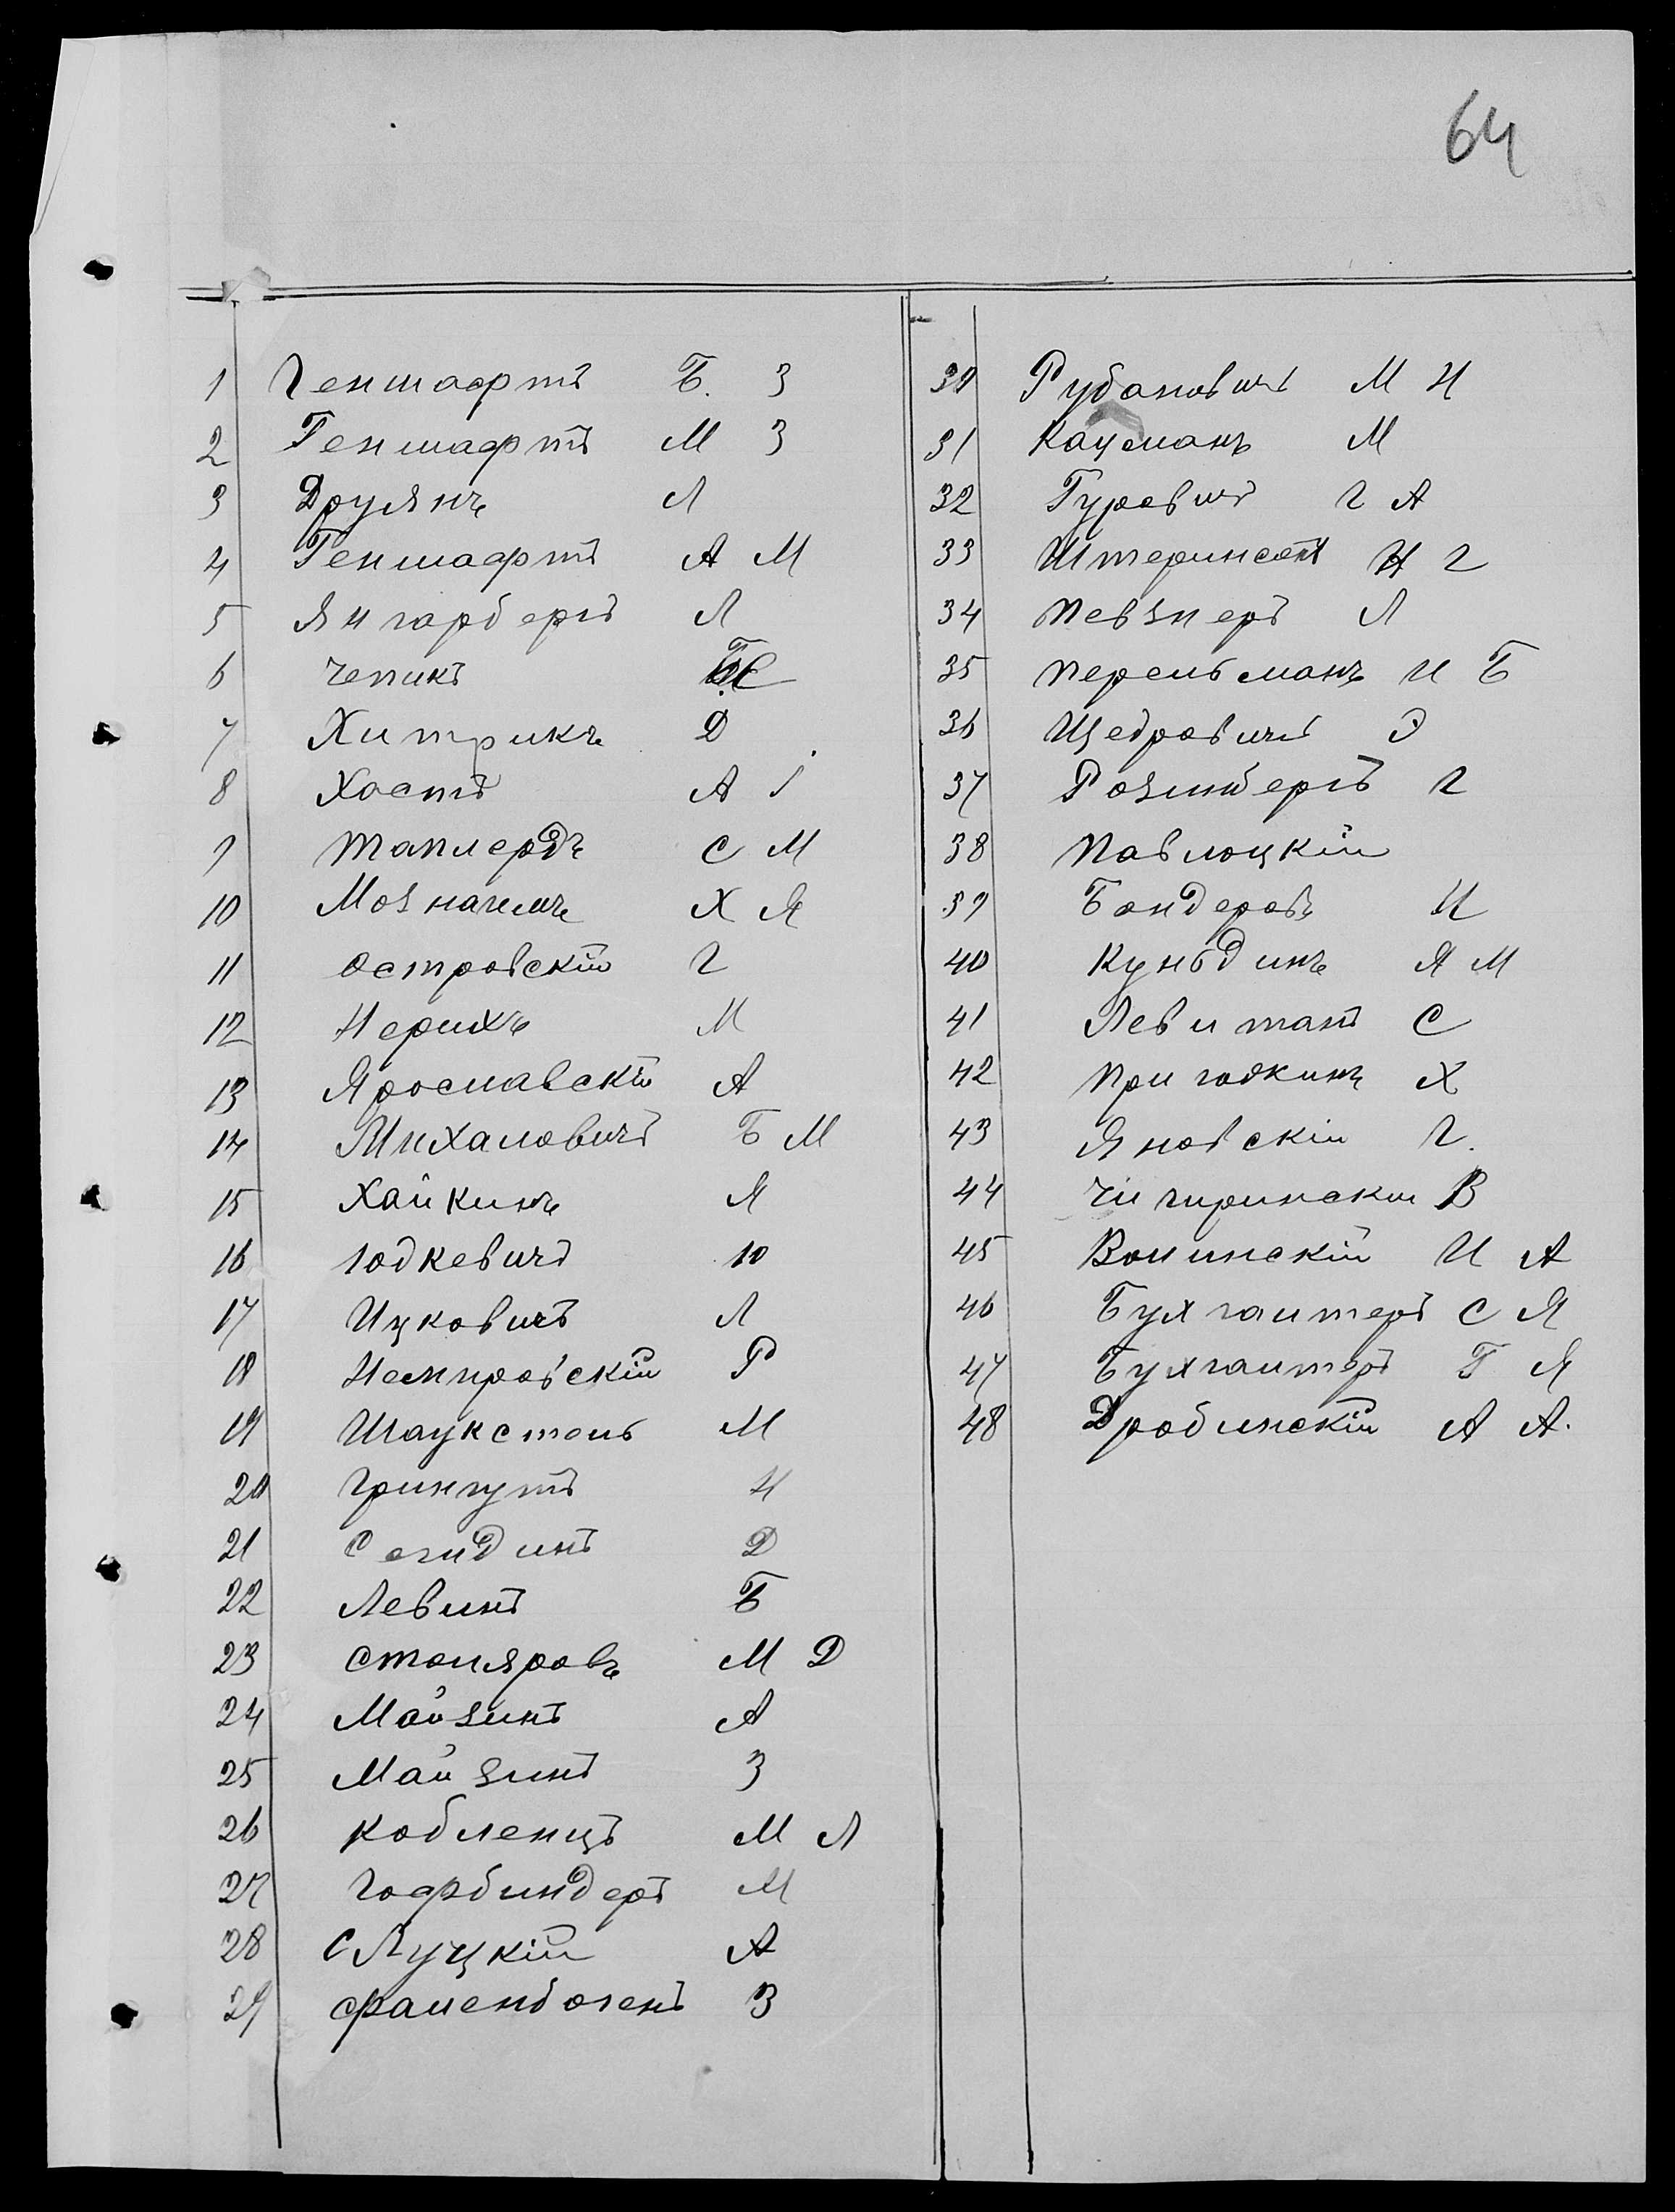 64
1 Геншафтъ Б. З
2 Геншафтъ М З
3 Друянъ Л
4 Геншафтъ А М
5 Янгарберъ Л
6 Чепикъ
7 Хитрикъ Д
8 Хостъ А І
9 Таплердъ С М
10 Мозначимъ Х Я
11 Островскій Г
12 Нерихъ М
13 Ярославскій А
14 Михаловичъ Б М
15 Хайкинъ Я
16 Юдкевичъ Ю
17 Ицковичъ Л
18 Немировскій Р
19 Шаукстель М
20 Грингутъ Н
21 Согидинъ Д
22 Левинъ Б
23 Столяровъ М Д
24 Майзинъ А
25 Майзинъ З
26 Кобленцъ М Л
27 Гофбиндеръ М
28 Слуцкій А
29 Фаленбогенъ З
30 Рубановичъ М И
31 Кацманъ М
32 Гуревичъ Г А
33 Штеринсонъ Н Г
34 Певзнеръ Л
35 Перельманъ И Б
36 Щедровичъ Э
37 Розинбергъ Г
38 Павлоцкій
39 Бондеровъ И
40 Куньдинъ Я М
41 Левитанъ С
42 Пригодкинъ Х
43 Яновскій Г.
44 Чигиринскій В
45 Волинскій И А
46 Бухгалтеръ С Я
47 Бухгалтеръ Г Я
48 Дробинскій А А.